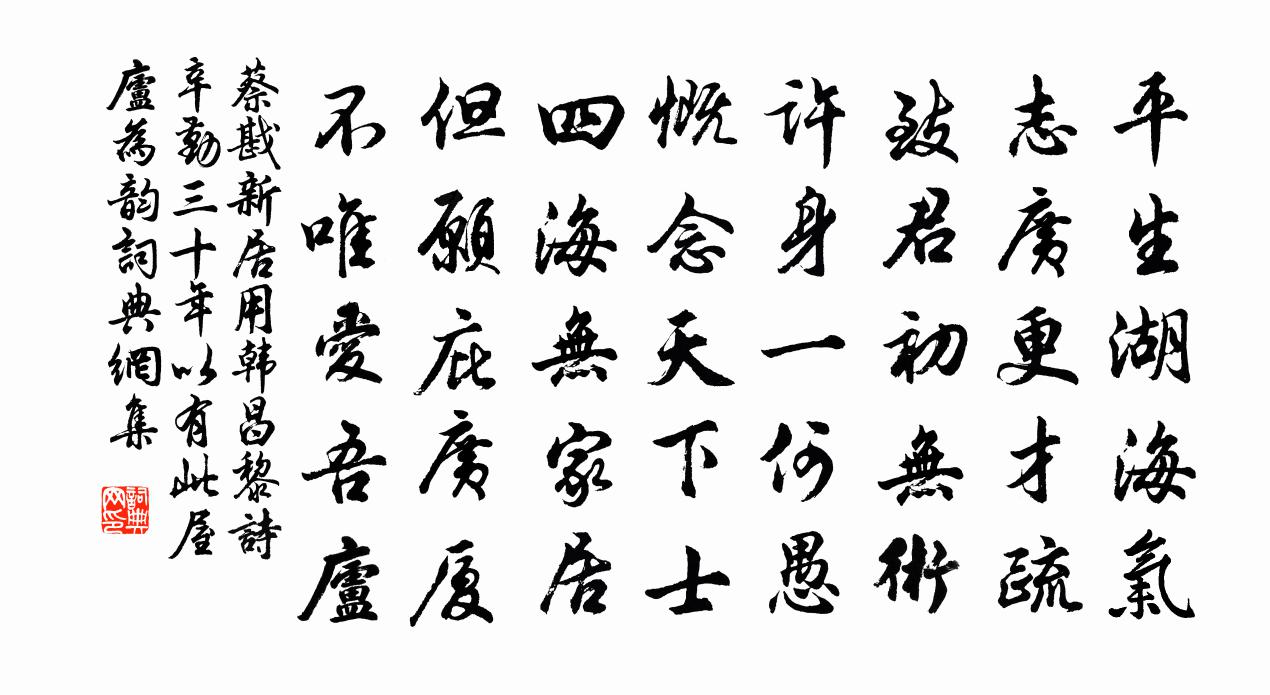 平生湖海氣
志廣更才疏
致君初無術
許身一何愚
慨念天下士
四海無家居
但願庇廣厦
不唯愛吾廬
蔡戡新居用韩昌黎詩
辛勤三十年以有此屋
廬為韵詞典網集
詞典网印